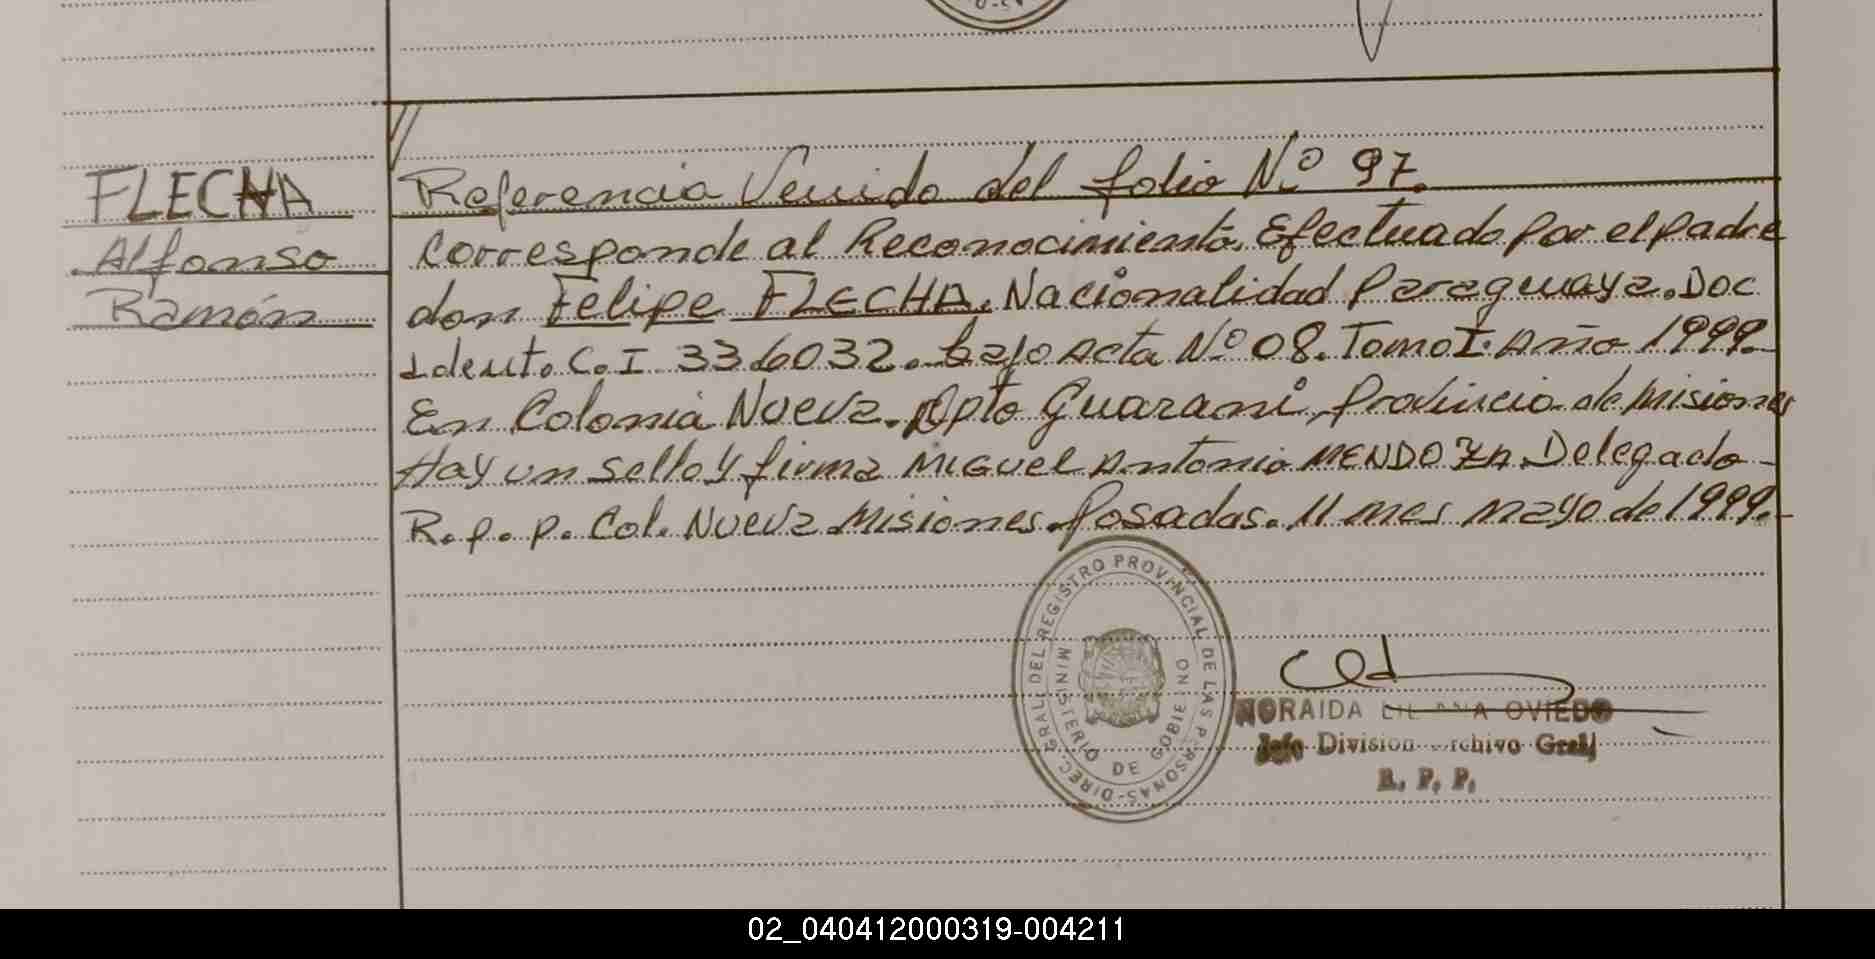 FLECHA
Alfonso
Ramón
Referencia Venido del folio N.º 97.
Corresponde al Reconocimiento. Efectuado por el padre
don Felipe FLECHA. Nacionalidad Paraguaya. Doc
Ident. C. I. 336032. bajo Acta Nº 08. Tomo I. Año 1999.
En Colonia Nueva. Dpto Guarani, Provincia de Misiones
Hay un sello y firma Miguel Antonio MENDOZA Delegado
R. p. p. Col. Nueva Misiones. Posadas. 11 mes mayo de 1999.
DIREC. GRAL. DEL REGISTRO PROVINCIAL DE LAS PERSONAS-
MINISTERIO DE GOBIERNO
NORAIDA LILIANA OVIEDO
Jefe Division Archivo Gral
R. P. P.
02_040412000319-004211